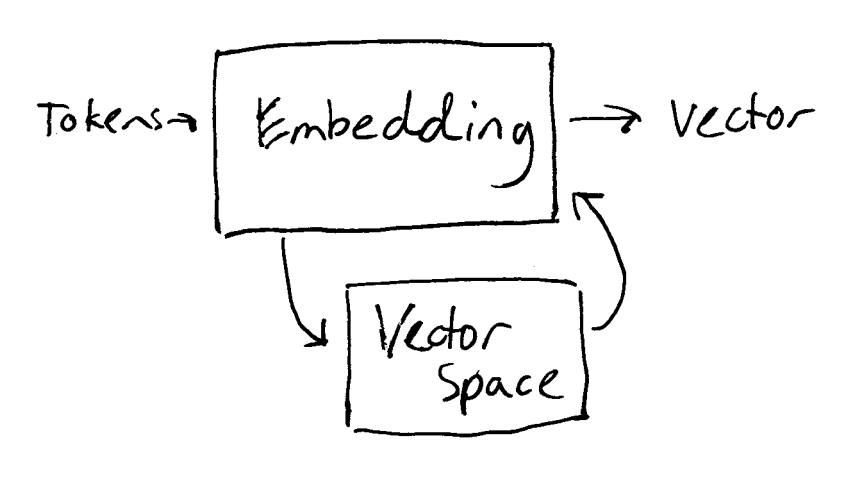 Tokens
Embedding
Vector
Vector
Space